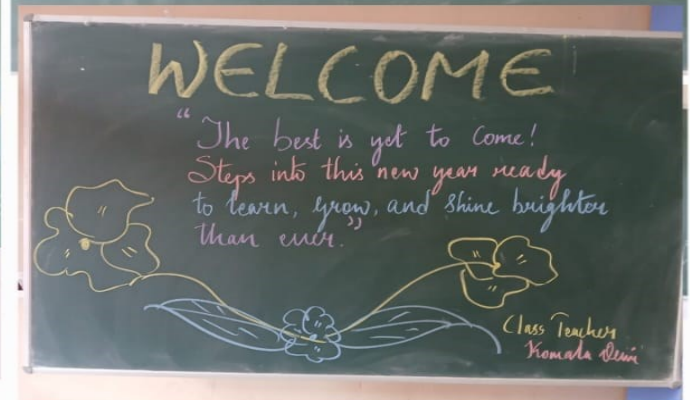 WELCOME
"The best is yet to come!
Steps into this new year ready
to learn, grow, and shine brighter
than ever."
Class Teacher
Komala Devi